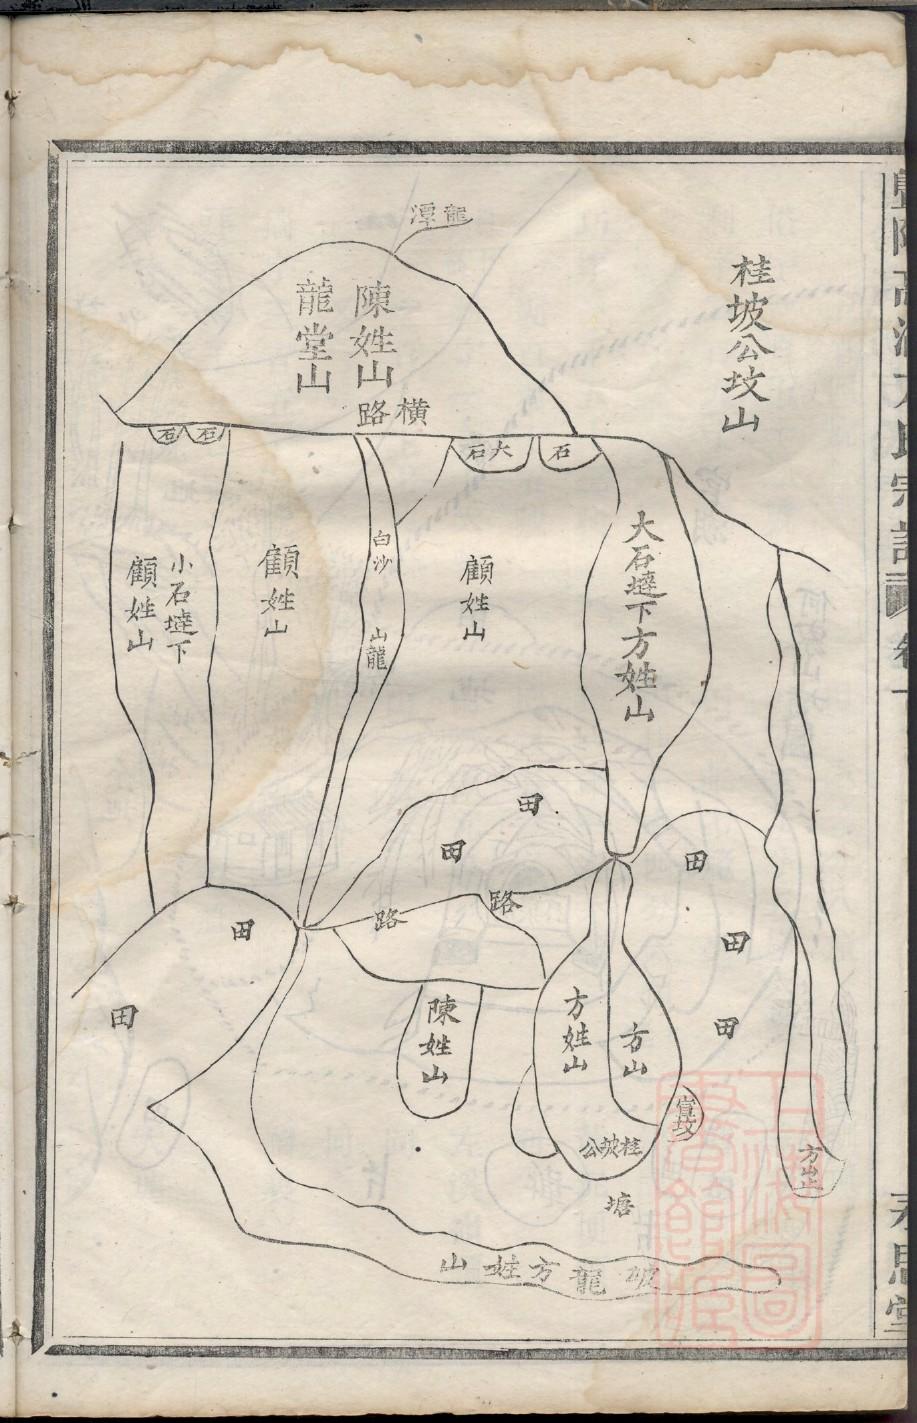 桂坡公坟山
龍潭
陳姓山
龍堂山
橫路
石
大石
石
石
大石墶下方姓山
顧姓山
白沙
山龍
顧姓山
小石墶下
顧姓山
田
田
田
田
田
路
路
田
田
方山
方姓山
陳姓山
桂坡公
宣坟
方山
塘
破龍方姓山
氏宗譜
卷十
思堂
上海圖書館藏